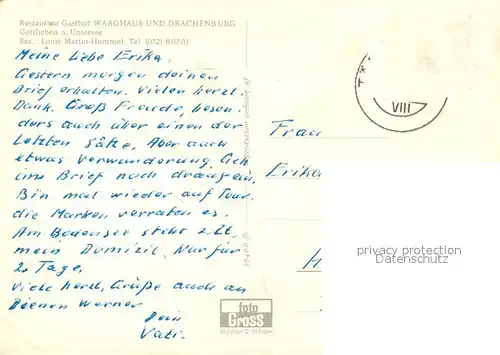 Restaurant Gasthof WAAGHAUS UND DRACHENBURG
Gottlieben a. Untersee
Bes.: Louis Martin-Hummel Tel (072) 8 02 03
Meine liebe Erika.
Gestern morgen deinen
Brief erhalten. Vielen herzl.
Dank. Groß Freude, beson-
ders auch über einen der
letzten Sätze. Aber auch
etwas verwunderung. Geh
im Brief noch drauf ein.
Bin mal wieder auf Tour,
die Marken verraten es.
Am Bodensee steht z.Zt.
mein Domizil. Nur für
2 Tage.
Viele herzl. Grüße auch an
Werner
Dein
Vati.
VIII
Frau
Erika
H
privacy protection
Datenschutz
foto
Gross
St. Gallen